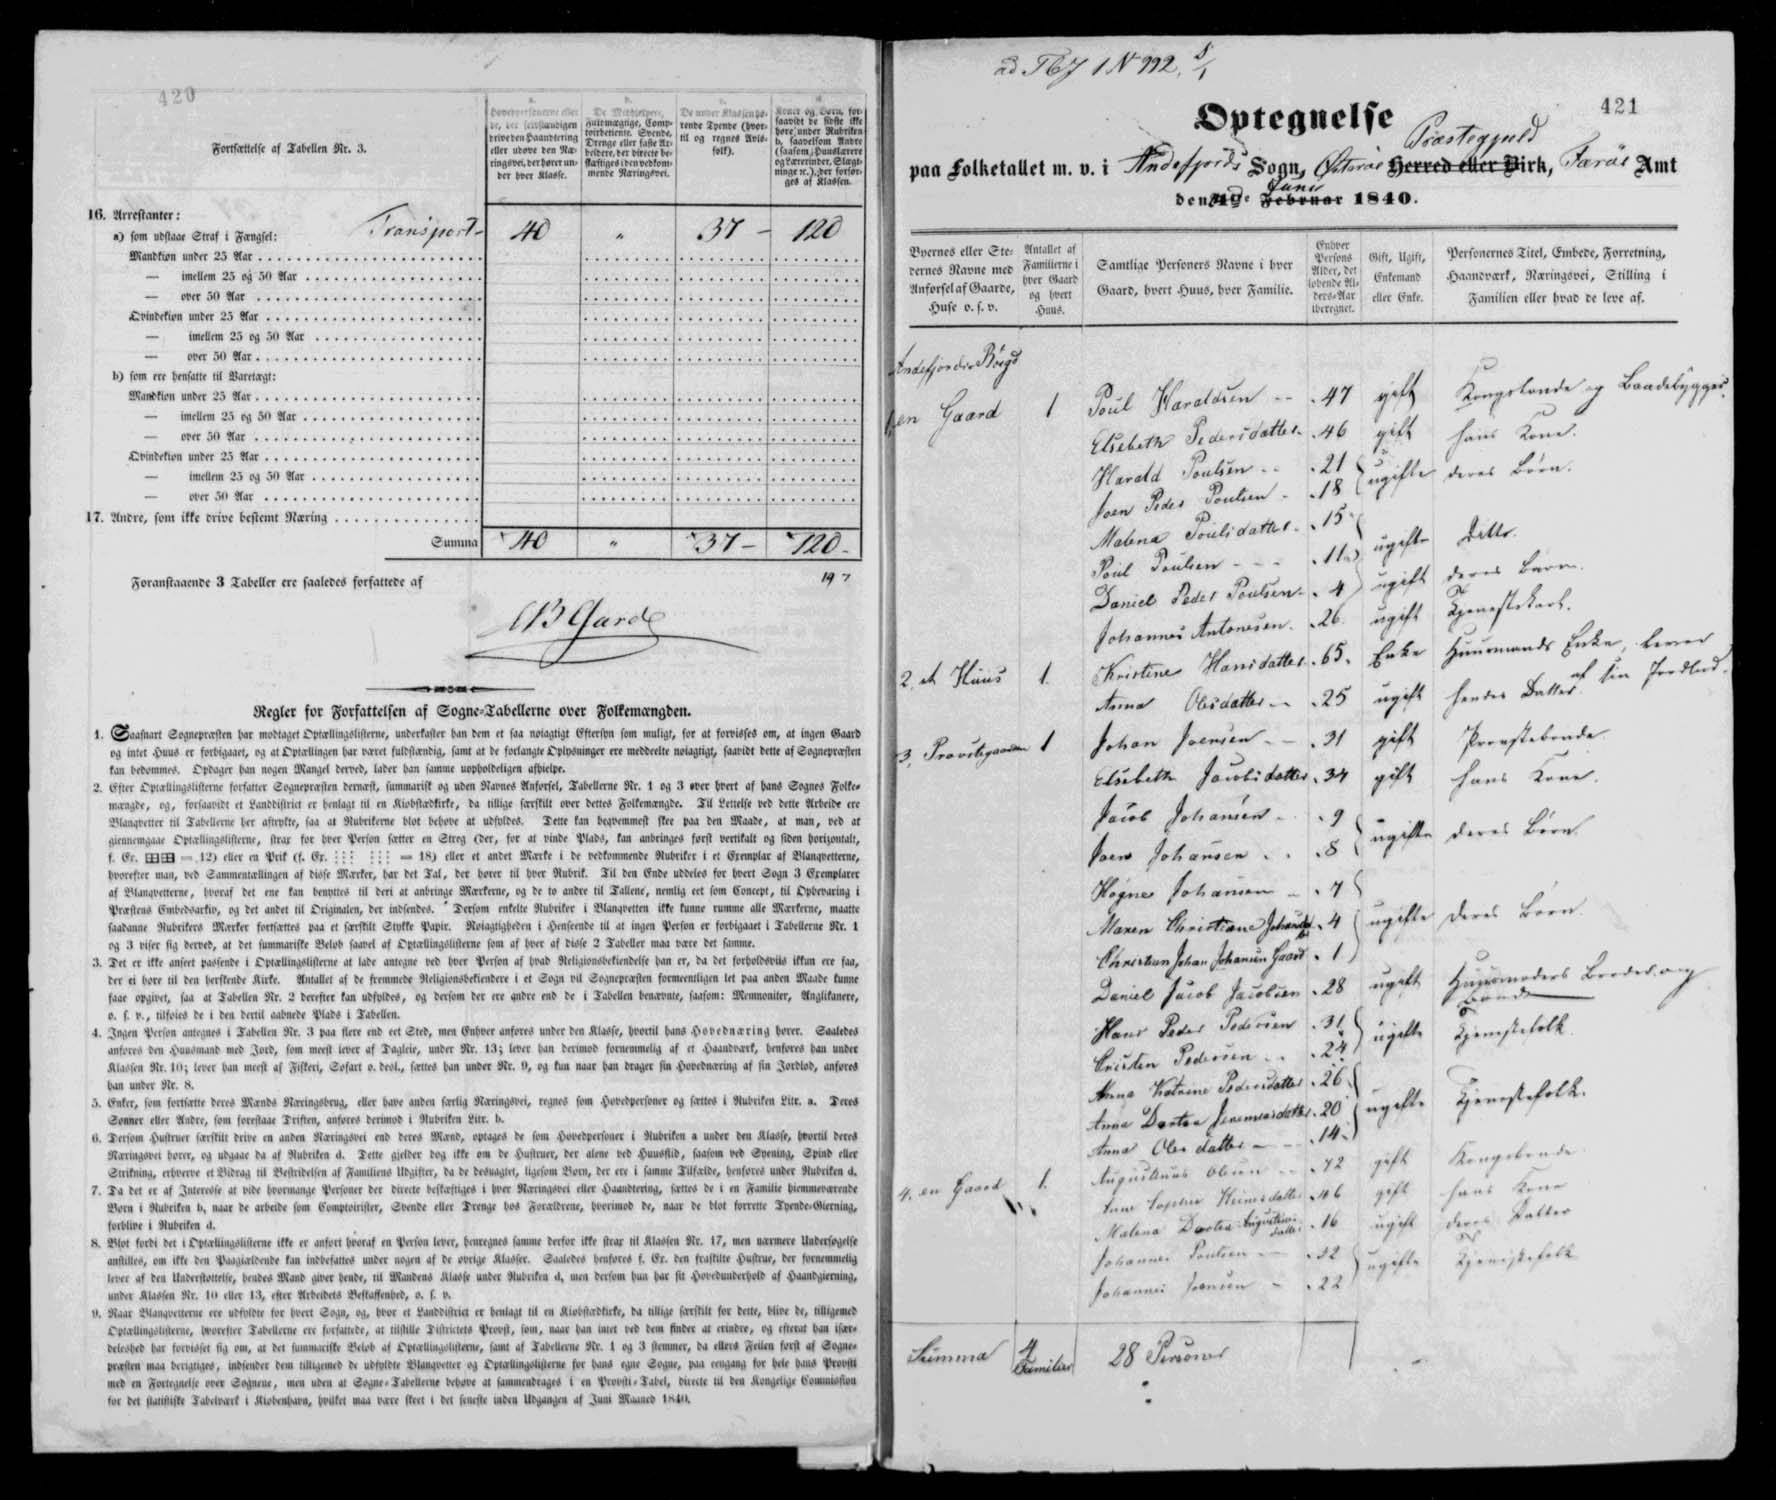 420
Fortsættelse af Tabellen Nr. 3.
a.
Hovedpersonerne eller
de, der selvstændigen
drive den Haandtering
eller udøve den Næ-
ringsvei, der hører un-
der hver Klasse.
b.
De Medhjelpere,
Fuldmægtige, Comp-
toirbetiente, Svende,
Drenge eller faste Ar-
beidere, der directe be-
skæftiges i den vedkom-
mende Næringsvei.
c.
De under Klassen hø-
rende Tyende (hvor-
til og regnes Avls-
folk).
d.
Koner og Børn, for-
saavidt de sidste ikke
høre under Rubriken
b, saavelsom Andre
(saasom, Huuslærere
og Lærerinder, Slægt-
ninge ꝛc.), der forsør-
ges af Klassen.
16. Arrestanter: Transport - 40 " 37 - 120
a) som udstaae Straf i Fængsel:
Mandkiøn under 25 Aar
— imellem 25 og 50 Aar
— over 50 Aar
Qvindekiøn under 25 Aar
— imellem 25 og 50 Aar
— over 50 Aar
b) som ere hensatte til Varetægt:
Mandkiøn under 25 Aar
— imellem 25 og 50 Aar
— over 50 Aar
Qvindekiøn under 25 Aar
— imellem 25 og 50 Aar
— over 50 Aar
17. Andre, som ikke drive bestemt Næring
Summa 40 " 37 - 120 -
197
Foranstaaende 3 Tabeller ere saaledes forfattede af
Gard
Regler for Forfattelsen af Sogne-Tabellerne over Folkemængden.
1. Saasnart Sognepræsten har modtaget Optællingslisterne, underkaster han dem et saa nøiagtigt Eftersyn som muligt, for at forvisses om, at ingen Gaard
og intet Huus er forbigaaet, og at Optællingen har været fuldstændig, samt at de forlangte Oplysninger ere meddeelte nøiagtigt, saavidt dette af Sognepræsten
kan bedømmes. Opdager han nogen Mangel derved, lader han samme uopholdeligen afhielpe.
2. Efter Optællingslisterne forfatter Sognepræsten dernæst, summarisk og uden Navnes Anførsel, Tabellerne Nr. 1 og 3 over hvert af hans Sognes Folke-
mængde, og, forsaavidt et Landdistrict er henlagt til en Kiøbstædkirke, da tillige særskilt over dettes Folkemængde. Til Lettelse ved dette Arbeide ere
Blanqvetter til Tabellerne her aftrykte, saa at Rubrikerne blot behøve at udfyldes. Dette kan beqvemmest skee paa den Maade, at man, ved at
giennemgaae Optællingslisterne, strax for hver Person sætter en Streg (der, for at vinde Plads, kan anbringes først vertikalt og siden horizontalt,
f. Ex. = 12) eller en Prik (f. Ex. = 18) eller et andet Mærke i de vedkommende Rubriker i et Exemplar af Blanqvetterne,
hvorefter man, ved Sammentællingen af disse Mærker, har det Tal, der hører til hver Rubrik. Til den Ende uddeles for hvert Sogn 3 Exemplarer
af Blanqvetterne, hvoraf det ene kan benyttes til deri at anbringe Mærkerne, og de to andre til Tallene, nemlig eet som Concept, til Opbevaring i
Præstens Embedsarkiv, og det andet til Originalen, der indsendes. Dersom enkelte Rubriker i Blanqvetten ikke kunne rumme alle Mærkerne, maatte
saadanne Rubrikers Mærker fortsættes paa et særskilt Stykke Papir. Nøiagtigheden i Henseende til at ingen Person er forbigaaet i Tabellerne Nr. 1
og 3 viser sig derved, at det summariske Beløb saavel af Optællingslisterne som af hver af disse 2 Tabeller maa være det samme.
3. Det er ikke anseet passende i Optællingslisterne at lade antegne ved hver Person af hvad Religionsbekiendelse han er, da det forholdsviis ikkun ere faa,
der ei høre til den herskende Kirke. Antallet af de fremmede Religionsbekiendere i et Sogn vil Sognepræsten formeentligen let paa anden Maade kunne
faae opgivet, saa at Tabellen Nr. 2 derefter kan udfyldes, og dersom der ere andre end de i Tabellen benævnte, saasom: Mennoniter, Anglikanere,
o. s. v., tilføies de i den dertil aabnede Plads i Tabellen.
4. Ingen Person antegnes i Tabellen Nr. 3 paa flere end eet Sted, men Enhver anføres under den Klasse, hvortil hans Hovednæring hører. Saaledes
anføres den Huusmand med Jord, som meest lever af Dagleie, under Nr. 13; lever han derimod fornemmelig af et Haandværk, henføres han under
Klassen Nr. 10; lever han meest af Fiskeri, Søfart o. desl., sættes han under Nr. 9, og kun naar han drager sin Hovednæring af sin Jordlod, anføres
han under Nr. 8.
5. Enker, som fortsætte deres Mænds Næringsbrug, eller have anden særlig Næringsvei, regnes som Hovedpersoner og sættes i Rubriken Litr. a. Deres
Sønner eller Andre, som forestaae Driften, anføres derimod i Rubriken Litr. b.
6. Dersom Hustruer særskilt drive en anden Næringsvei end deres Mænd, optages de som Hovedpersoner i Rubriken a under den Klasse, hvortil deres
Næringsvei hører, og udgaae da af Rubriken d. Dette gjelder dog ikke om de Hustruer, der alene ved Huusflid, saasom ved Syening, Spind eller
Strikning, erhverve et Bidrag til Bestridelsen af Familiens Udgifter, da de desuagtet, ligesom Børn, der ere i samme Tilfælde, henføres under Rubriken d.
7. Da det er af Interesse at vide hvormange Personer der directe beskæftiges i hver Næringsvei eller Haandtering, sættes de i en Familie hiemmeværende
Børn i Rubriken b, naar de arbeide som Comptoirister, Svende eller Drenge hos Forældrene, hvorimod de, naar de blot forrette Tyende-Gierning,
forblive i Rubriken d.
8. Blot fordi det i Optællingslisterne ikke er anført hvoraf en Person lever, henregnes samme derfor ikke strax til Klassen Nr. 17, men nærmere Undersøgelse
anstilles, om ikke den Paagiældende kan indbefattes under nogen af de øvrige Klasser. Saaledes henføres f. Ex. den fraskilte Hustrue, der fornemmelig
lever af den Understøttelse, hendes Mand giver hende, til Mandens Klasse under Rubriken d, men dersom hun har sit Hovedunderhold af Haandgierning,
under Klassen Nr. 10 eller 13, efter Arbeidets Beskaffenhed, o. s. v.
9. Naar Blanqvetterne ere udfyldte for hvert Sogn, og, hvor et Landdistrict er henlagt til en Kiøbstædkirke, da tillige særskilt for dette, blive de, tilligemed
Optællingslisterne, hvorefter Tabellerne ere forfattede, at tilstille Districtets Provst, som, naar han intet ved dem finder at erindre, og efterat han især-
deleshed har forvisset sig om, at det summariske Beløb af Optællingslisterne, samt af Tabellerne Nr. 1 og 3 stemmer, da ellers Feilen først af Sogne-
præsten maa berigtiges, indsender dem tilligemed de udfyldte Blanqvetter og Optællingslisterne for hans egne Sogne, paa eengang for hele hans Provsti
med en Fortegnelse over Sognene, men uden at Sogne-Tabellerne behøve at sammendrages i en Provsti-Tabel, directe til den Kongelige Commission
for det statistiske Tabelværk i Kiøbenhavn, hvilket maa være skeet i det seneste inden Udgangen af Juni Maaned 1840.
1 N 992,
421
Optegnelse
Præstegjeld
paa Folketallet m. v. i Andefjords Sogn, Østerøe Herred eller Birk, Færöe Amt
Juni
den de Februar 1840.
Byernes eller Ste-
dernes Navne med
Anførsel af Gaarde,
Huse o. s. v.
Antallet af
Familierne i
hver Gaard
og hvert
Huus.
Samtlige Personers Navne i hver
Gaard, hvert Huus, hver Familie.
Enhver
Persons
Alder, det
løbende Al-
ders-Aar
iberegnet.
Gift, Ugift,
Enkemand
eller Enke.
Personernes Titel, Embede, Forretning,
Haandværk, Næringsvei, Stilling i
Familien eller hvad de leve af.
Andefjords Böigd
1, en Gaard 1 Poul Haraldsen 47 gift Kongsbonde og Baadebygger.
Elsebeth Pedersdatter 46 gift hans Kone.
Harald Poulsen 21 ugifte deres Börn.
Joen Peder Poulsen 18
Malena Poulsdatter 15 ugifte Ditto.
Poul Poulsen 11
Daniel Peder Poulsen 4 ugift deres Barn.
Johannes Antonesen 26 ugift Tjenestekarl.
2, et Huus 1. Kristine Hansdatter 65. Enke Huusmands Enke, lever
af sin Jordlod.
Anna Olesdatter 25 ugift hendes Datter
3, Provstegaarden 1 Johan Joensen 31 gift Provstebonde
Elsebeth Jacobsdatter 34 gift hans Kone.
Jacob Johansen 9 ugifte deres Börn.
Joen Johansen 8
Høgne Johansen 7
Maren Christiane Johansd 4 ugifte deres Börn.
Christian Johan Johansen Gaard 1
Daniel Jacob Jacobsen 28 ugift Huusmoders Broder og
Hans Peder Pedersen 31 ugifte Tjenestefolk.
Cristen Pedersen 24
Anna Katrine Pedersdatter 26
Anna Dortea Jeremiasdatter 20 ugifte Tjenestefolk.
Anna Olesdatter 14
4, en Gaard 1. Augustinus Olesen 72 gift Kongsbonde
Anne Sophie Heinesdatter 46 gift hans Kone
Malena Dortea Augustinus-
datter 16 ugift deres Datter
Johannes Poulsen 32 ugifte Tjenestefolk
Johannes Joensen 22
Summa 4
Familier 28 Personer